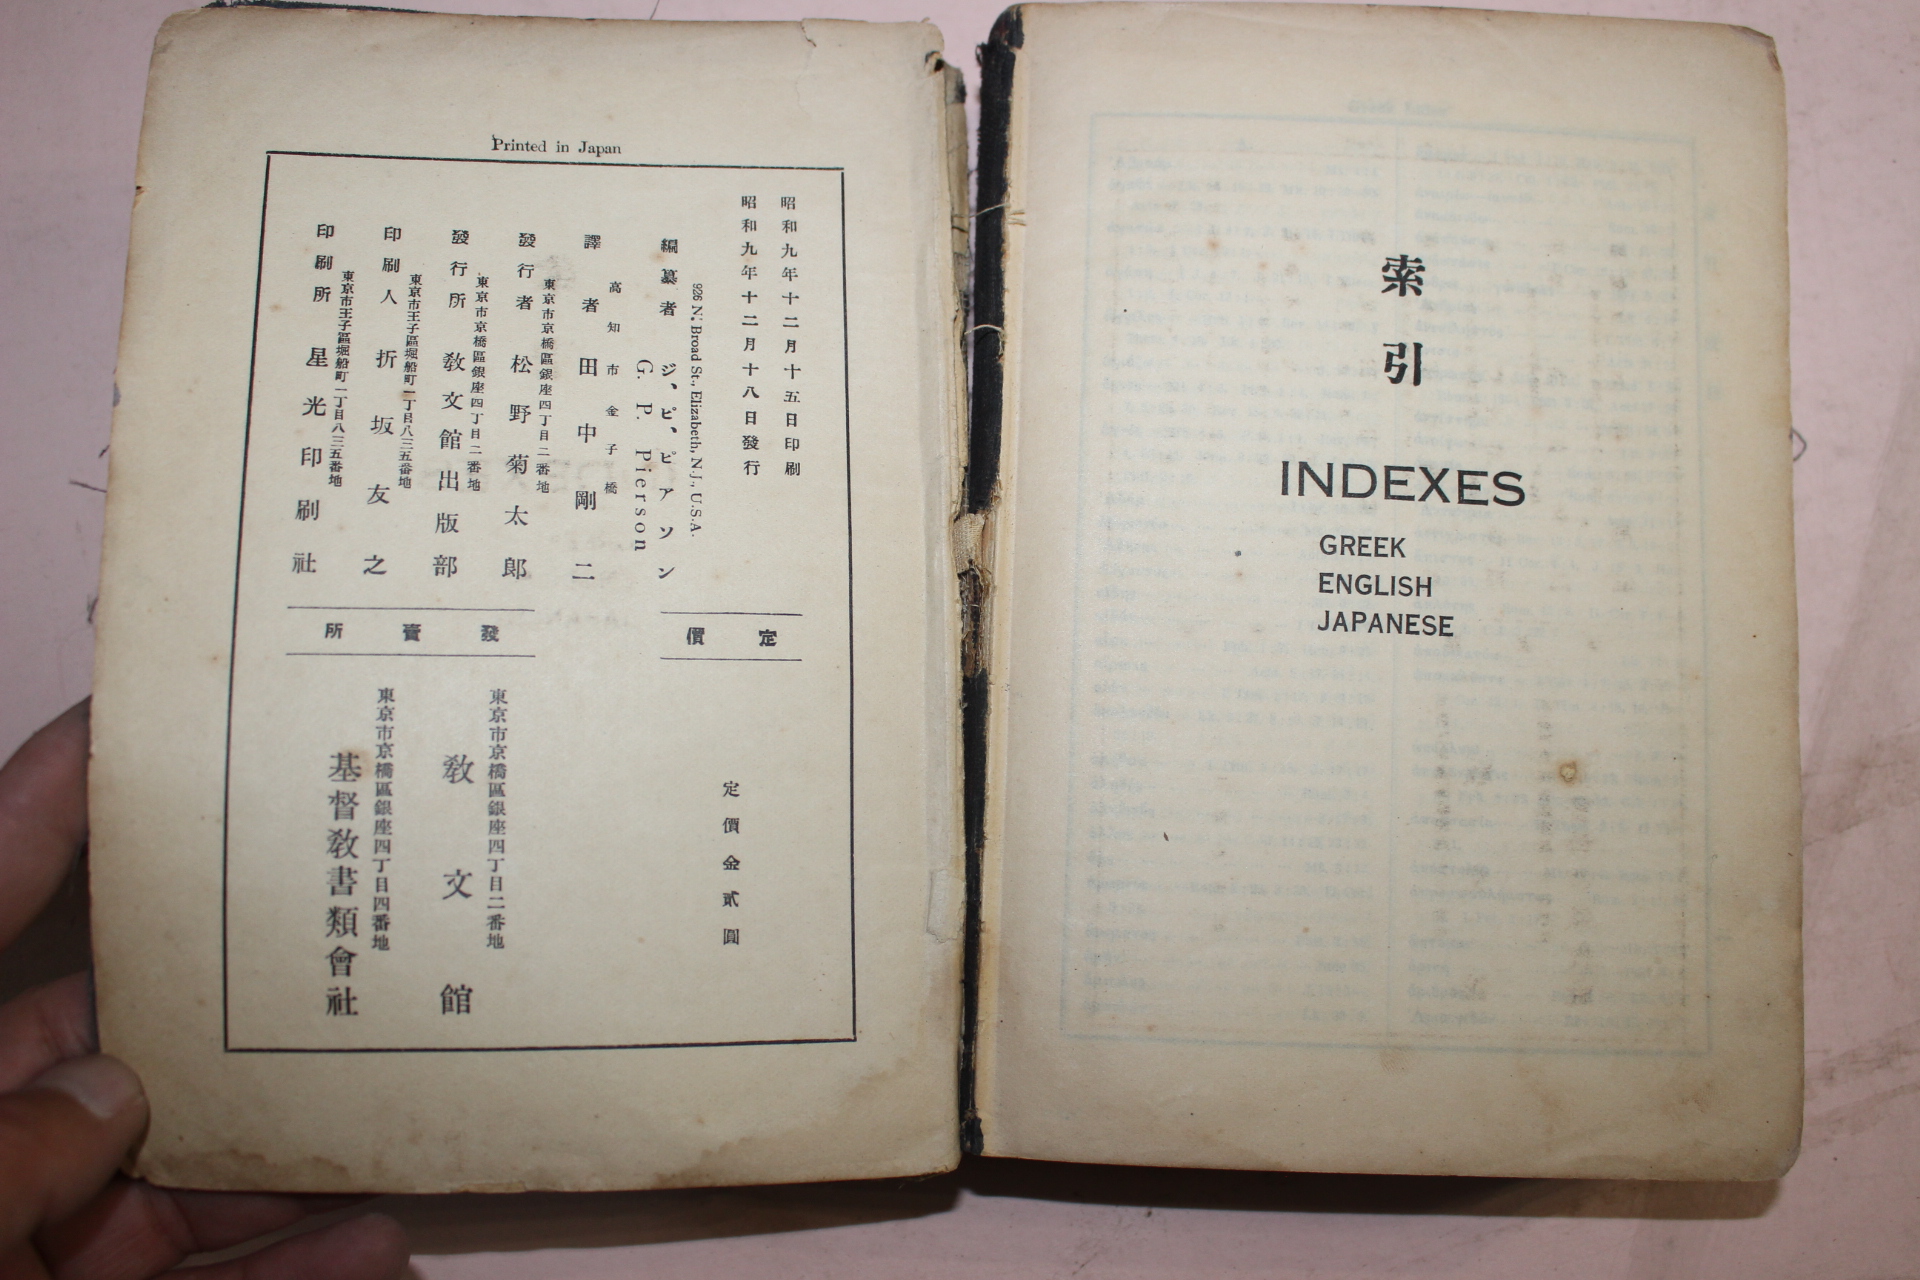 Printed in Japan
昭和九年十二月十五日印刷
昭和九年十二月十八日發行
926 N. Broad St., Elizabeth, N.J., U.S.A.
編纂者 ジ、ピ、ピアソン
G. P. Pierson
高知市金子橋
譯者 田中剛二
東京市京橋區銀座四丁目二番地
發行者 松野菊太郎
東京市京橋區銀座四丁目二番地
發行所 敎文館出版部
東京市王子區堀船町一丁目八三五番地
印刷人 折坂友之
東京市王子區堀船町一丁目八三五番地
印刷所 星光印刷社
定價
定價金貳圓
發賣所
東京市京橋區銀座四丁目二番地
敎文館
東京市京橋區銀座四丁目四番地
基督敎書類會社
索引
INDEXES
GREEK
ENGLISH
JAPANESE